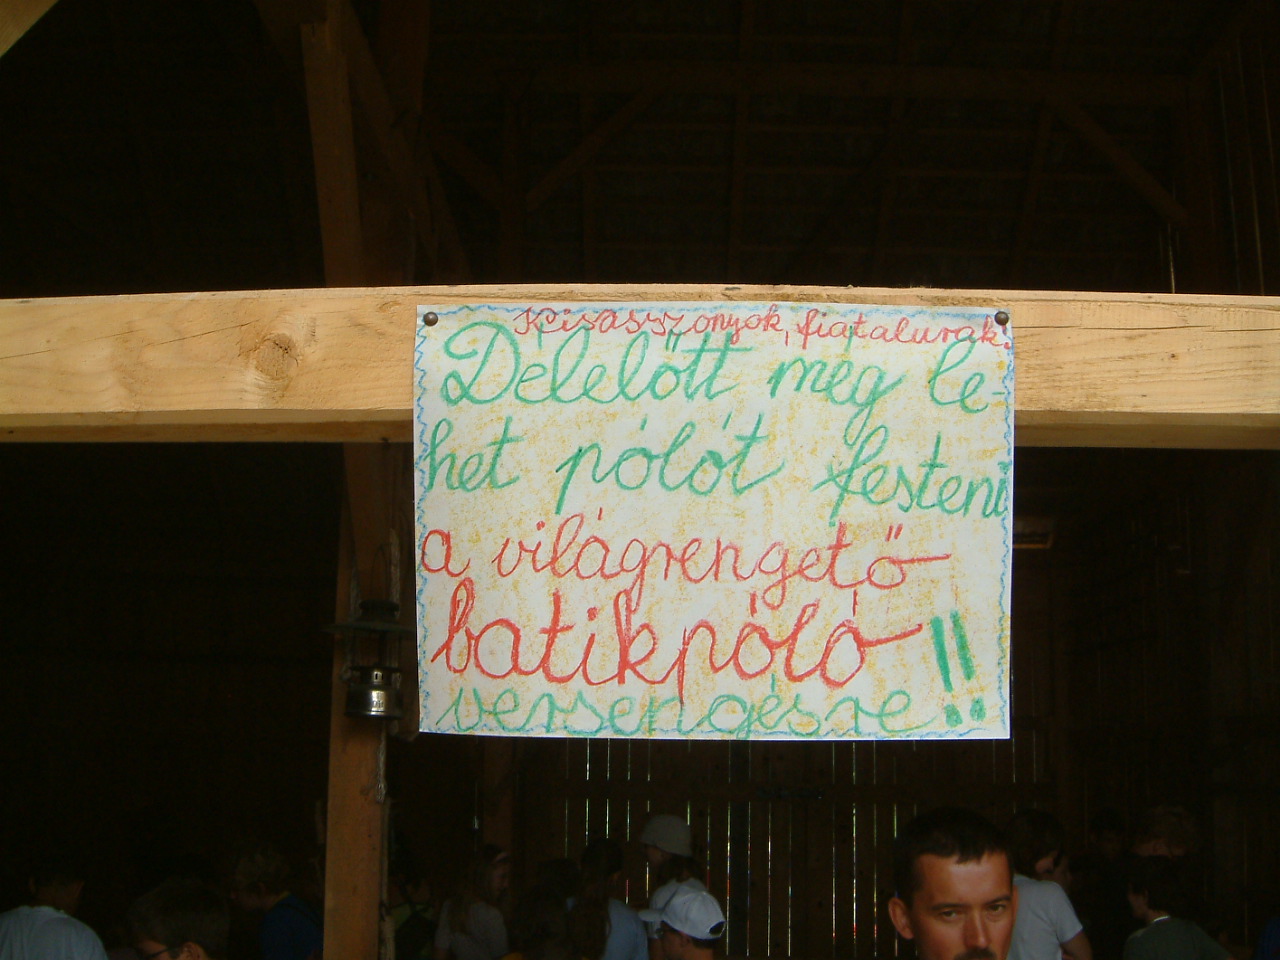 Kisasszonyok, fiatalurak!
Delelőtt még le-
het pólót festeni
a világrengető
batikpóló
versengésre!!